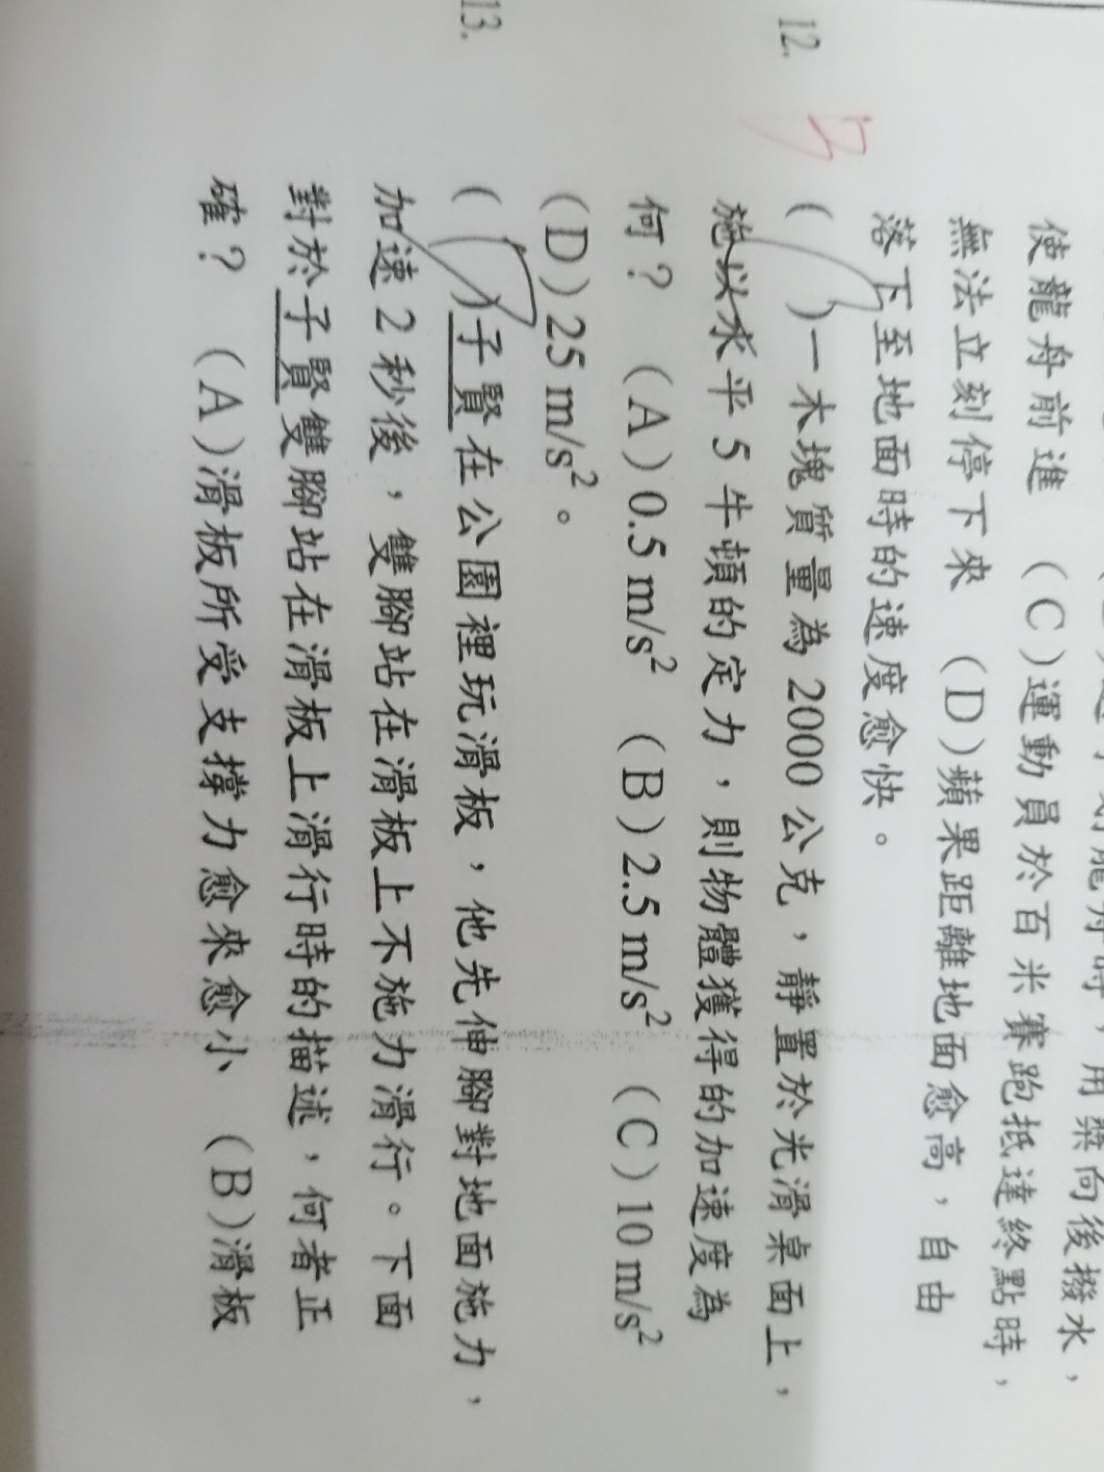 使龍舟前進 (C)運動員於百米賽跑抵達終點時，
無法立刻停下來 (D)蘋果距離地面愈高，自由
落下至地面時的速度愈快。
12. ( )一木塊質量為 2000 公克，靜置於光滑桌面上，
施以水平 5 牛頓的定力，則物體獲得的加速度為
何？ (A) 0.5 m/s² (B) 2.5 m/s² (C) 10 m/s²
(D) 25 m/s²。
13. ( )子賢在公園裡玩滑板，他先伸腳對地面施力，
加速 2 秒後，雙腳站在滑板上不施力滑行。下面
對於子賢雙腳站在滑板上滑行時的描述，何者正
確？ (A)滑板所受支撐力愈來愈小 (B)滑板